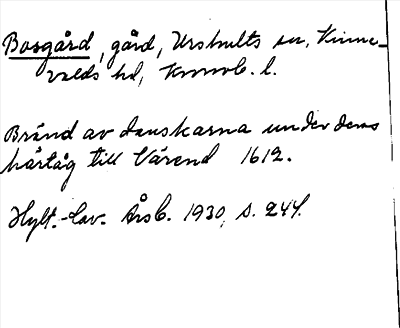 Bosgård, gård, Urshults sn, Kinne-
valds hd, Kronob. l.
Bränd av danskarna under deras
härtåg till Värend 1612.
Hylt.-Cav. Årsb. 1930, s. 244.